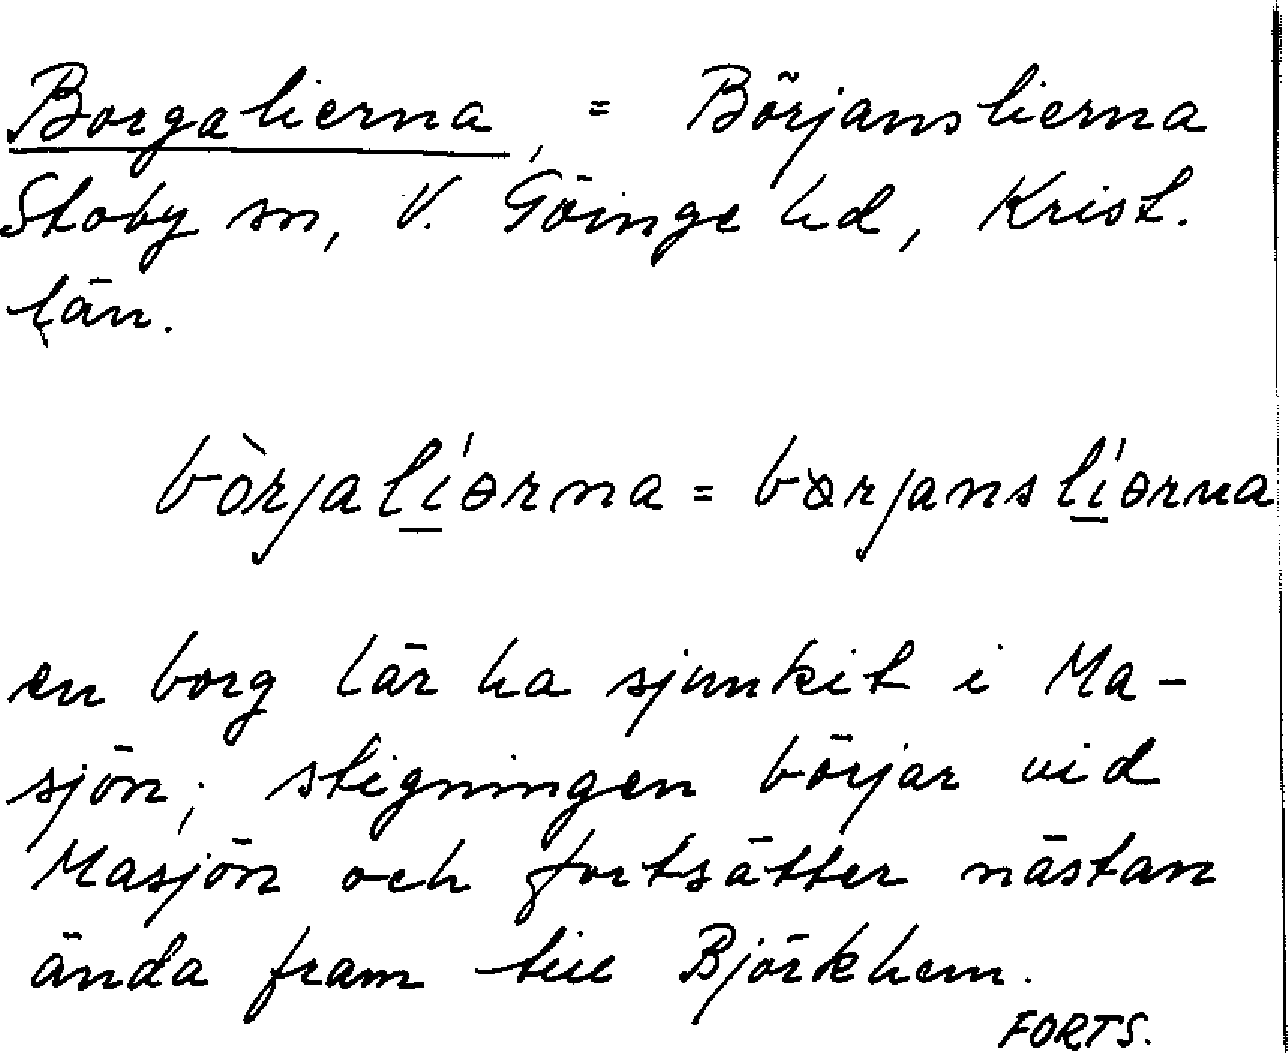 Borgalierna, = Börjanslierna
Stoby sn, V. Göinge hd, Krist.
län.
bòrjalíərna = bɵrjanslíərna
en borg lär ha sjunkit i Ma-
sjön; stigningen börjar vid
Masjön och fortsätter nästan
ända fram till Björkhem.
FORTS.